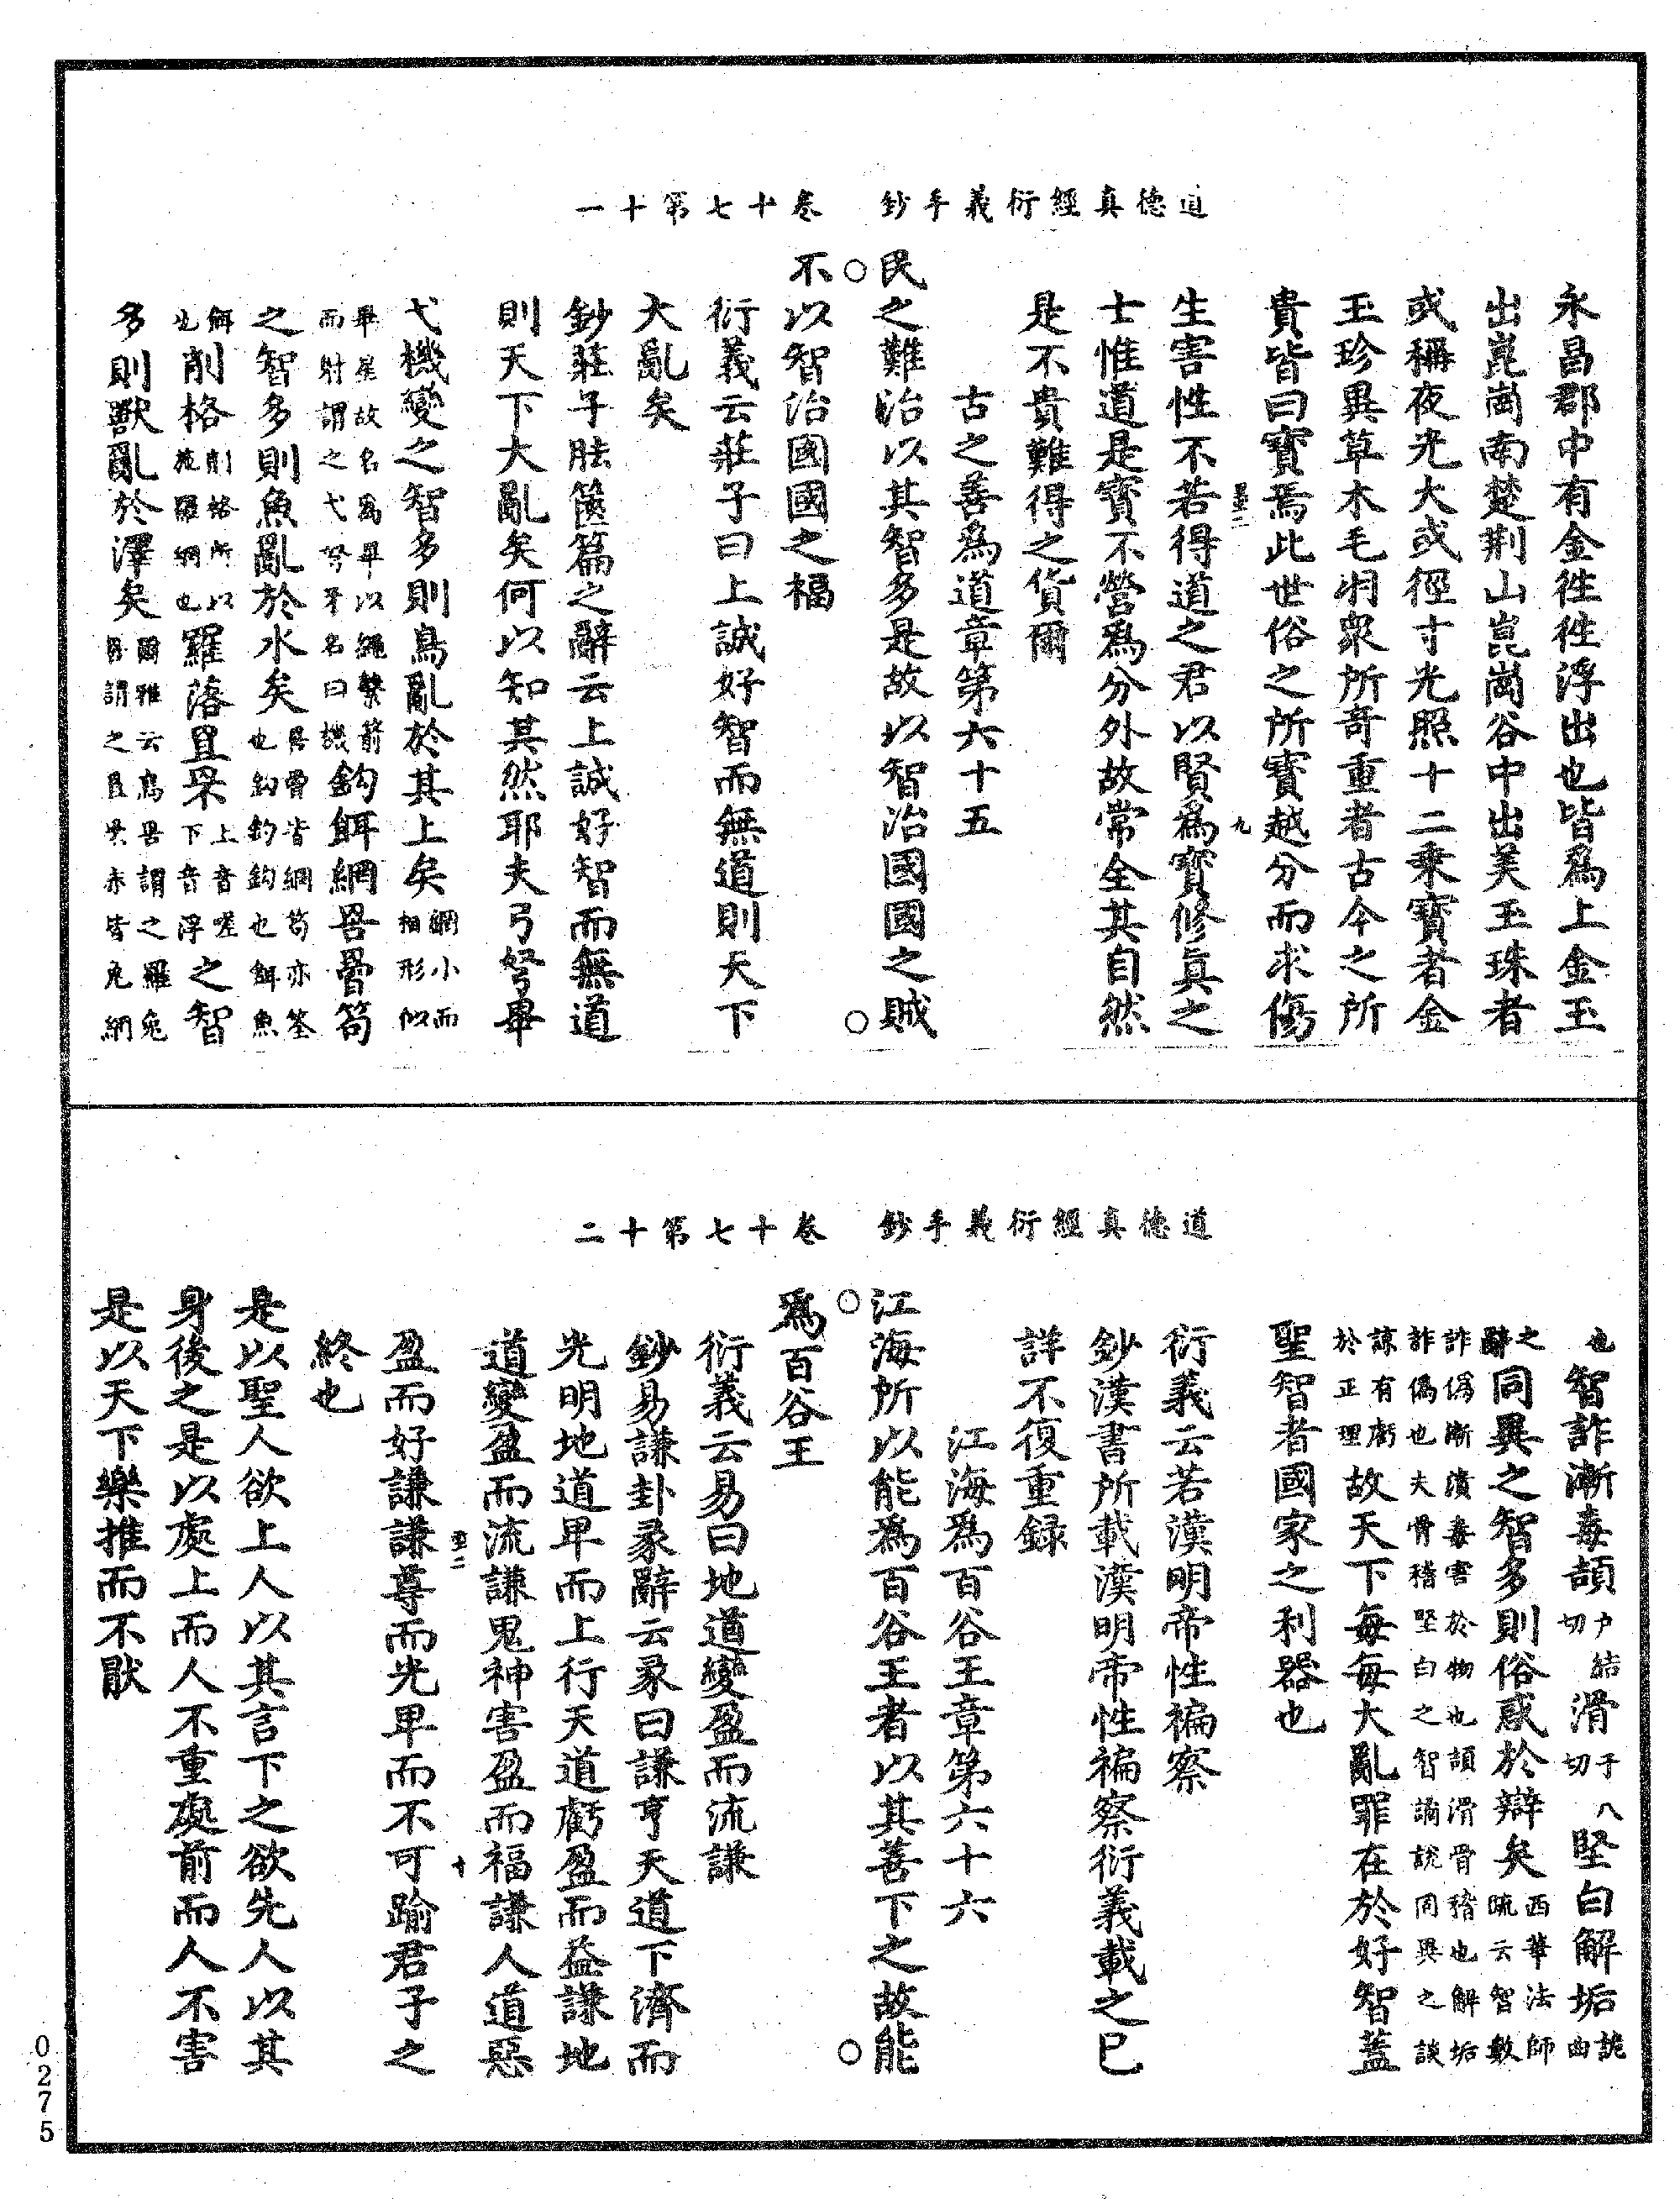 道德真經衍義手鈔　卷十七第十一
永昌郡中有金徃徃浮出也皆爲上金玉
出崑崗南楚荆山崑崗谷中出美玉珠者
或稱夜光大或徑寸光照十二乘寶者金
玉珍異草木毛羽衆所竒重者古今之所
貴皆曰寶焉此世俗之所寶越分而求傷
生害性不若得道之君以賢爲寶修真之
士惟道是寶不營爲分外故常全其自然
是不貴難得之貨爾
古之善爲道章第六十五
民之難治以其智多是故以智治國國之賊
○　○
不以智治國國之福
衍義云莊子曰上誠好智而無道則天下
大亂矣
鈔莊子胠篋篇之辭云上誠好智而無道
則天下大亂矣何以知其然耶夫弓弩畢
弋機變之智多則鳥亂於其上矣網小而相形似
畢星故名爲畢以繩繫箭而射謂之弋弩牙名曰機鈎餌網罟罾笱
之智多則魚亂於水矣罟罾皆網笱亦筌也鈎釣鈎也餌魚
餌也削格削格所以施羅網也羅落罝罘上音嗟下音浮之智
多則獸亂於澤矣爾雅云鳥罟謂之羅兔罟謂之罝罘亦皆兔網
道德真經衍義手鈔　卷十七第十二
也智詐漸毒頡户結切滑子八切堅白解垢詭曲
之辭同異之智多則俗惑於辯矣西華法師疏云智數
詐僞漸漬毒害於物也頡滑骨稽也解垢詐僞也夫骨稽堅白之智譎詭同異之談
諒有虧於正理故天下每每大亂罪在於好智蓋
聖智者國家之利器也
衍義云若漢明帝性褊察
鈔漢書所載漢明帝性褊察衍義載之已
詳不復重録
江海爲百谷王章第六十六
江海所以能爲百谷王者以其善下之故能
○　○
爲百谷王
衍義云易曰地道變盈而流謙
鈔易謙卦彖辭云彖曰謙亨天道下濟而
光明地道卑而上行天道虧盈而益謙地
道變盈而流謙鬼神害盈而福謙人道惡
十
盈而好謙謙尊而光卑而不可踰君子之
終也
是以聖人欲上人以其言下之欲先人以其
身後之是以處上而人不重處前而人不害
是以天下樂推而不猒
0275